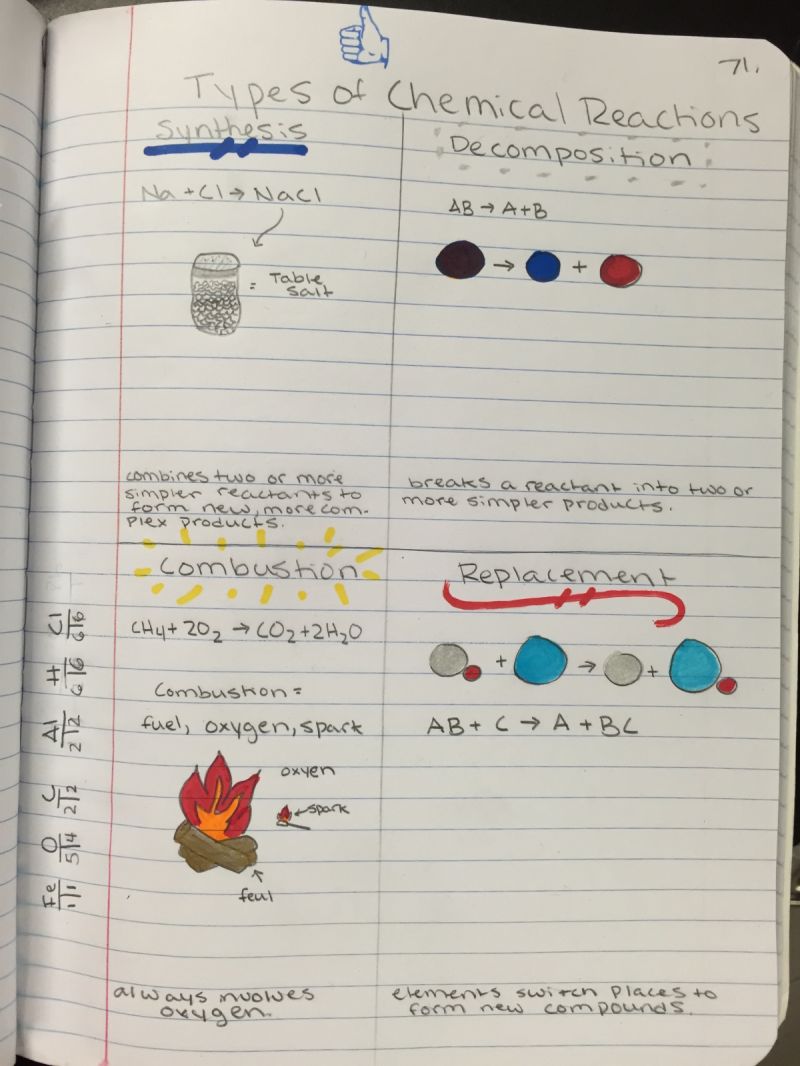 71.
Types of Chemical Reactions
Synthesis
Na + Cl → NaCl
= Table
Salt
combines two or more
simpler reactants to
form new, more com-
plex products.
Decomposition
AB → A + B
→ +
breaks a reactant into two or
more simpler products.
Combustion
CH4 + 2O2 → CO2 + 2H2O
Combustion =
fuel, oxygen, spark
oxyen
spark
feul
always involves
oxygen.
Replacement
+ → +
AB + C → A + BC
elements switch places to
form new compounds.
Cl
6|6
H
6|6
Al
2|2
C
2|2
O
5|4
Fe
1|1